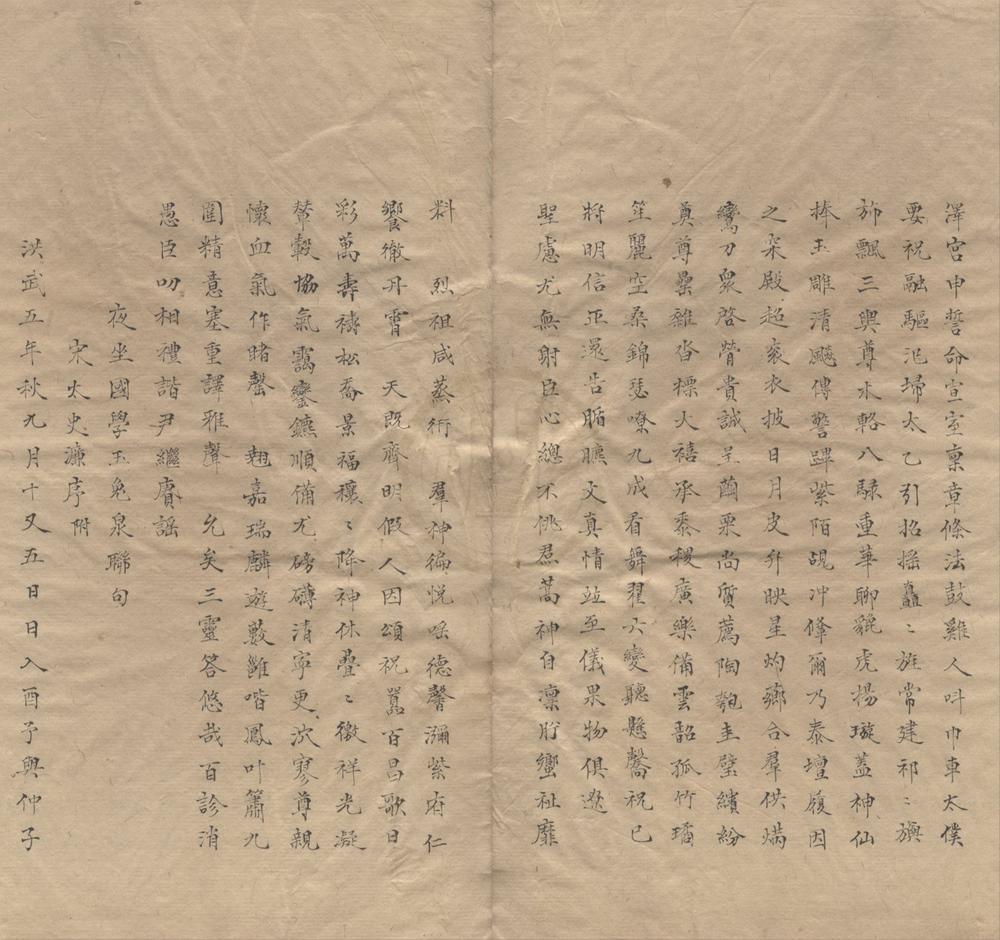 澤宮申誓命宣室稟章條法鼓雞人叫巾車太僕
要祝融驅汜埽太乙引招搖矗〻旌常建祁〻旟
斾飄三輿尊水輅八騄重華聊貔虎揚璇蓋神仙
捧玉雕清飈傳警蹕紫陌覘冲絛爾乃泰壇履因
之宷殿超衮衣披日月皮弁映星灼薌合羣供𤋱
鸞刀衆啓膋貴誠呈繭栗尚質薦陶匏圭璧繽紛
奠尊罍雜沓摽大禧承黍稷廣樂備雲韶孤竹璚
笙麗空桑錦瑟嘹九成看舞翟六變聽懸䯨祝已
將明信巫還告脜膲文真情竝至儀果物俱遼
聖慮尤無射臣心總不佻焄蒿神自凛肸蠁祉靡
料　烈祖咸蒸衎　羣神徧悅咊德馨瀰紫府仁
饗徹丹霄　天既齊明假人因頌祝嚣百昌歌日
彩萬壽禱松喬景福穰〻降神休疊〻徵祥光凝
輦轂協氣靄鑾鑣順備尤磅礴清寧更泬寥尊親
懷血氣作睹罄　翹嘉瑞麟遊藪雝喈鳳叶簫九
圍精意塞重譯雅聲　允矣三靈答悠哉百診消
愚臣叨相禮諧尹繼賡謡
夜坐國學玉兔泉聯句
宋太史濂序附
洪武五年秋九月十又五日日入酉予與仲子